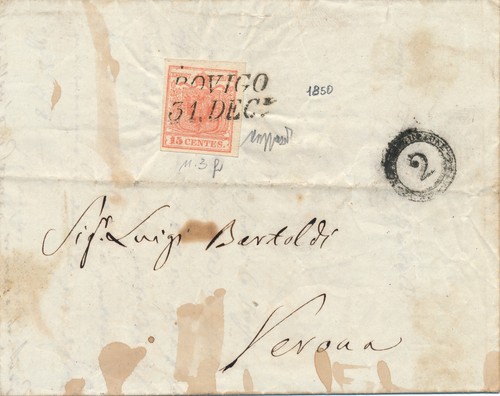 ROVIGO
31. DECE
1850
15 CENTES.
n. 3
2
Sigr. Luigi Bertoldi
Verona